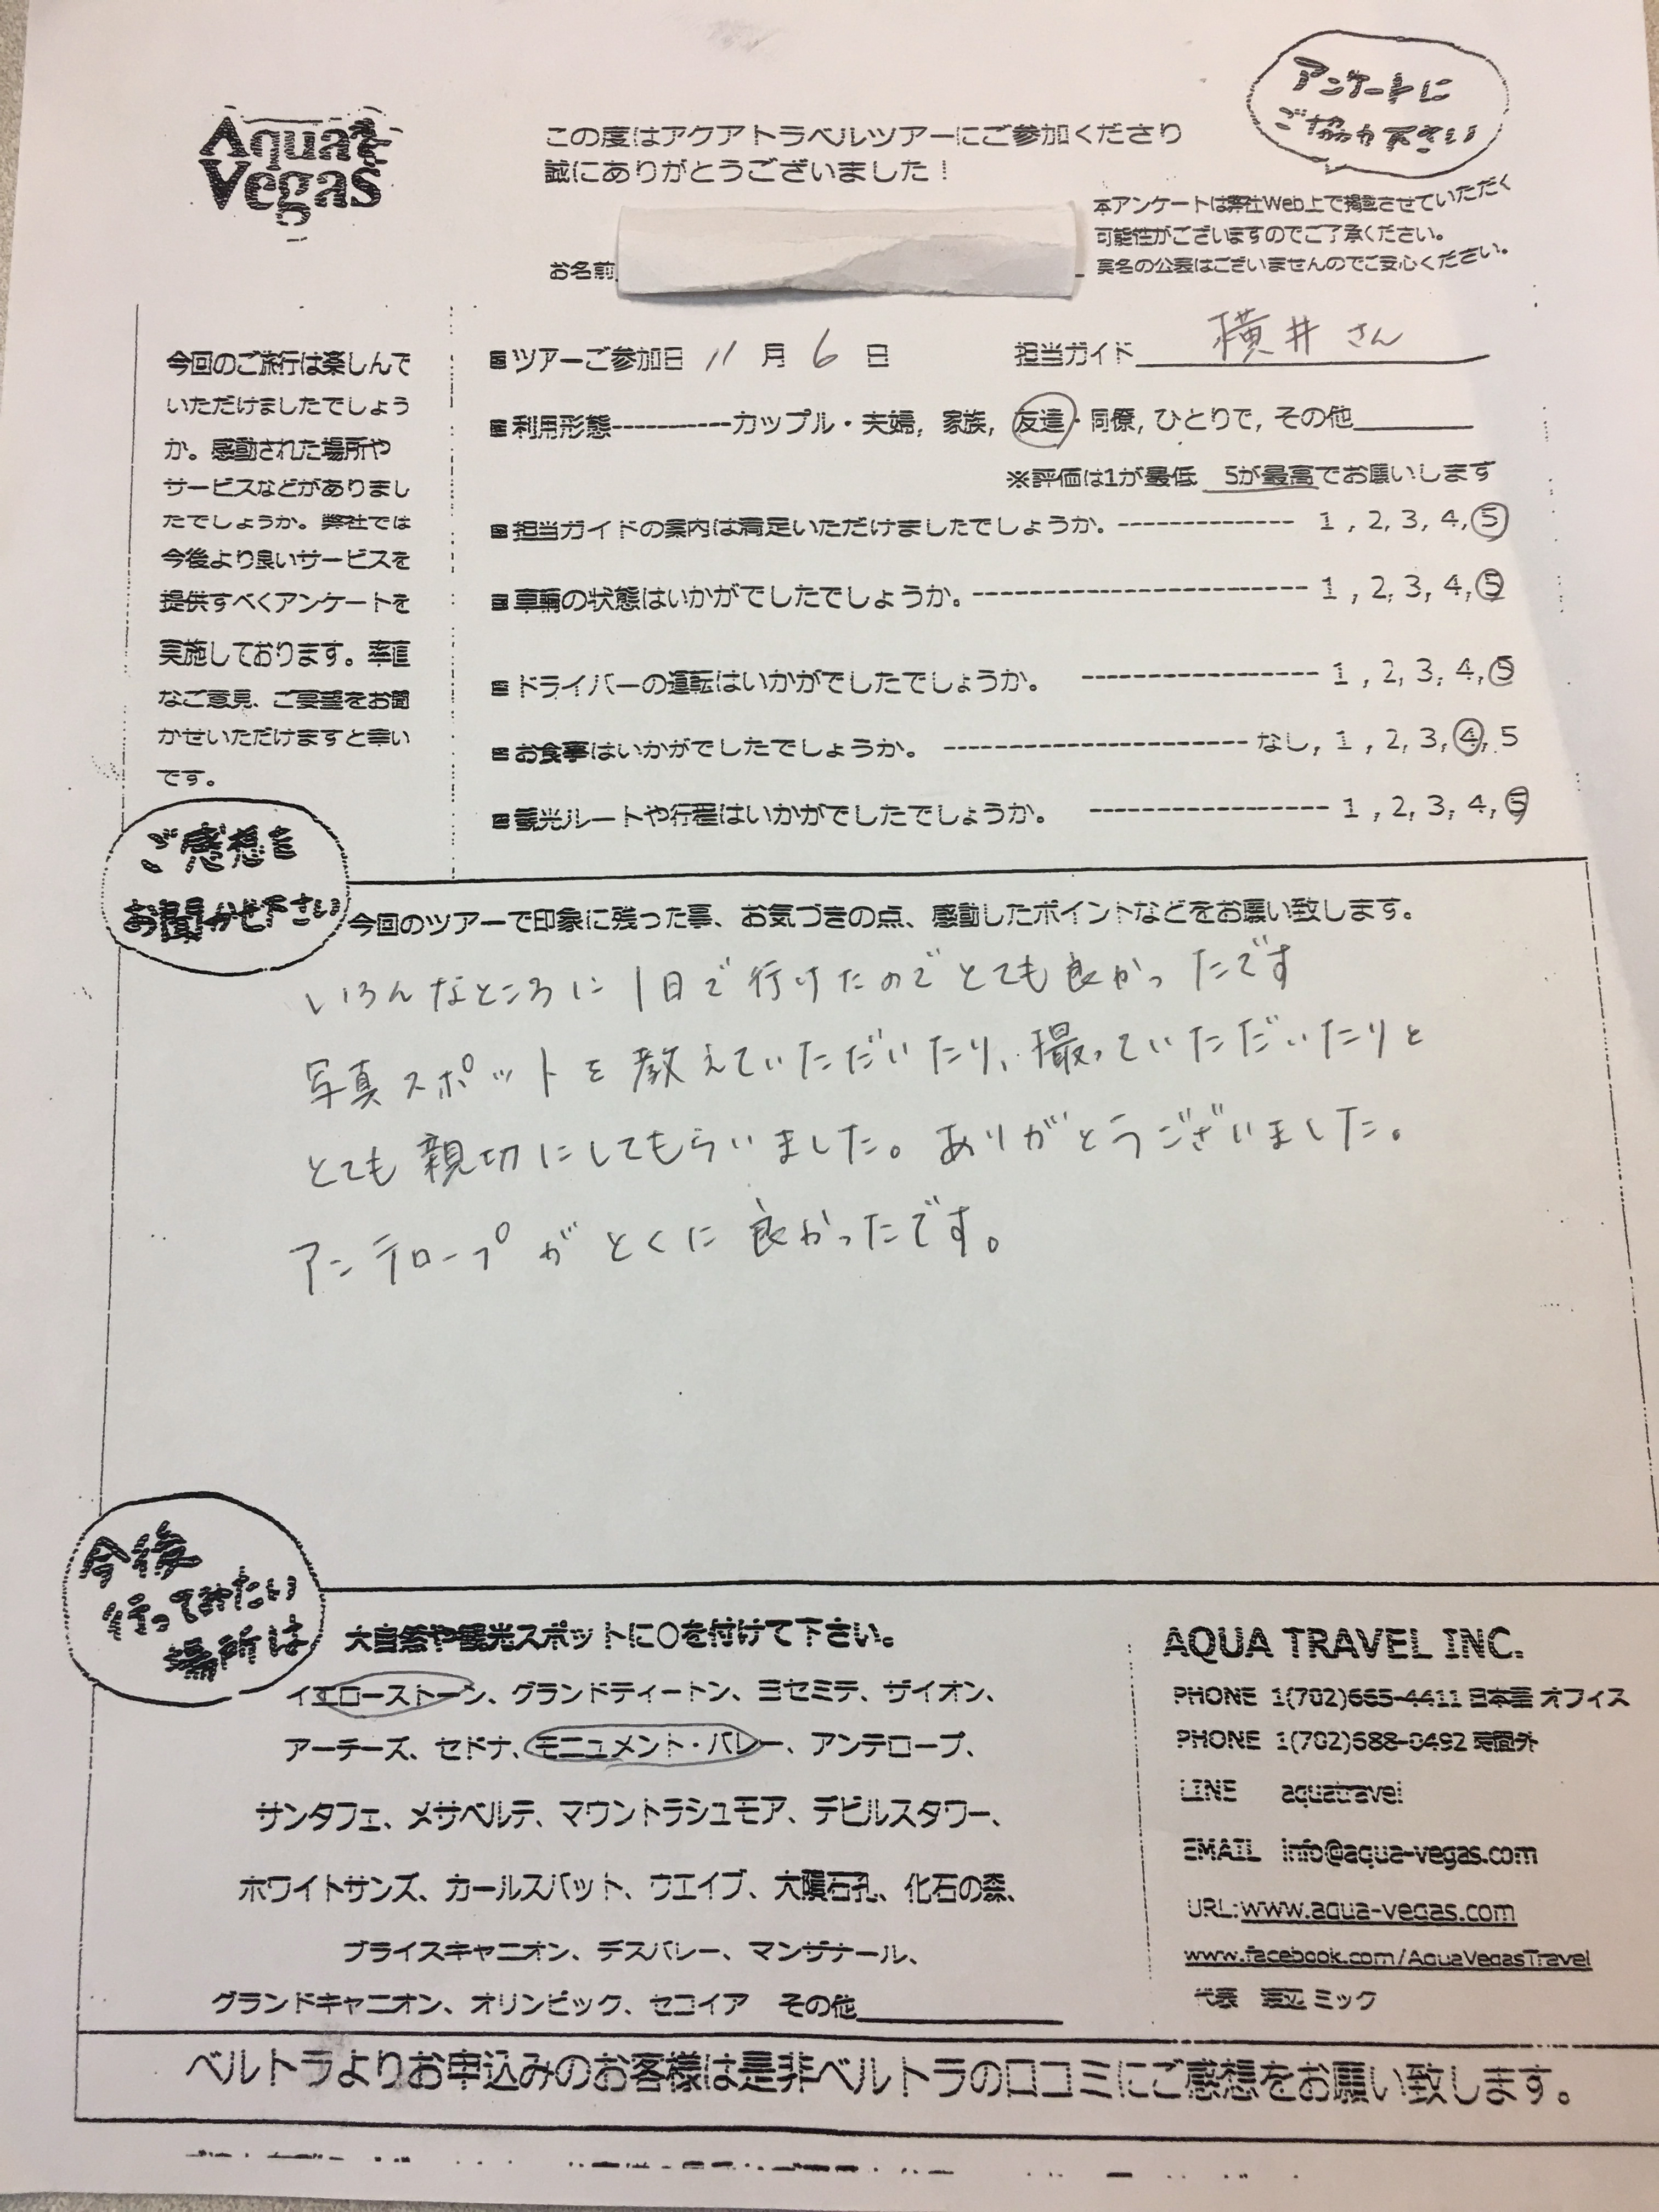 Aqua
Vegas
この度はアクアトラベルツアーにご参加くださり
誠にありがとうございました！
アンケートに
ご協力下さい
本アンケートは弊社Web上で掲載させていただく
可能性がございますのでご了承ください。
実名の公表はございませんのでご安心ください。
お名前
今回のご旅行は楽しんで
いただけましたでしょう
か。感動された場所や
サービスなどがありまし
たでしょうか。弊社では
今後より良いサービスを
提供すべくアンケートを
実施しております。率直
なご意見、ご要望をお聞
かせいただけますと幸い
です。
■ツアーご参加日 11 月 6 日 担当ガイド 横井さん
■利用形態-----------カップル・夫婦, 家族, 友達・同僚, ひとりで, その他
※評価は1が最低 5が最高でお願いします
■担当ガイドの案内は満足いただけましたでしょうか。-------------- 1, 2, 3, 4, 5
■車輌の状態はいかがでしたでしょうか。--------------------------- 1, 2, 3, 4, 5
■ドライバーの運転はいかがでしたでしょうか。 ------------------- 1, 2, 3, 4, 5
■お食事はいかがでしたでしょうか。------------------------なし, 1, 2, 3, 4, 5
■観光ルートや行程はいかがでしたでしょうか。 ------------------- 1, 2, 3, 4, 5
ご感想を
お聞かせ下さい
今回のツアーで印象に残った事、お気づきの点、感動したポイントなどをお願い致します。
いろんなところに1日で行けたのでとても良かったです
写真スポットを教えていただいたり、撮っていただいたりと
とても親切にしてもらいました。ありがとうございました。
アンテロープがとくに良かったです。
今後
行ってみたい
場所は
大自然や観光スポットに○を付けて下さい。
イエローストーン、グランドティートン、ヨセミテ、ザイオン、
アーチーズ、セドナ、モニュメント・バレー、アンテロープ、
サンタフェ、メサベルデ、マウントラシュモア、デビルスタワー、
ホワイトサンズ、カールスバット、ウエイブ、大隕石孔、化石の森、
ブライスキャニオン、デスバレー、マンザナール、
グランドキャニオン、オリンピック、セコイア その他
AQUA TRAVEL INC.
PHONE 1(702)665-4411 日本語 オフィス
PHONE 1(702)588-0492 時間外
LINE aquatravel
EMAIL info@aqua-vegas.com
URL:www.aqua-vegas.com
www.facebook.com/AquaVegasTravel
代表 渡辺 ミック
ベルトラよりお申込みのお客様は是非ベルトラの口コミにご感想をお願い致します。